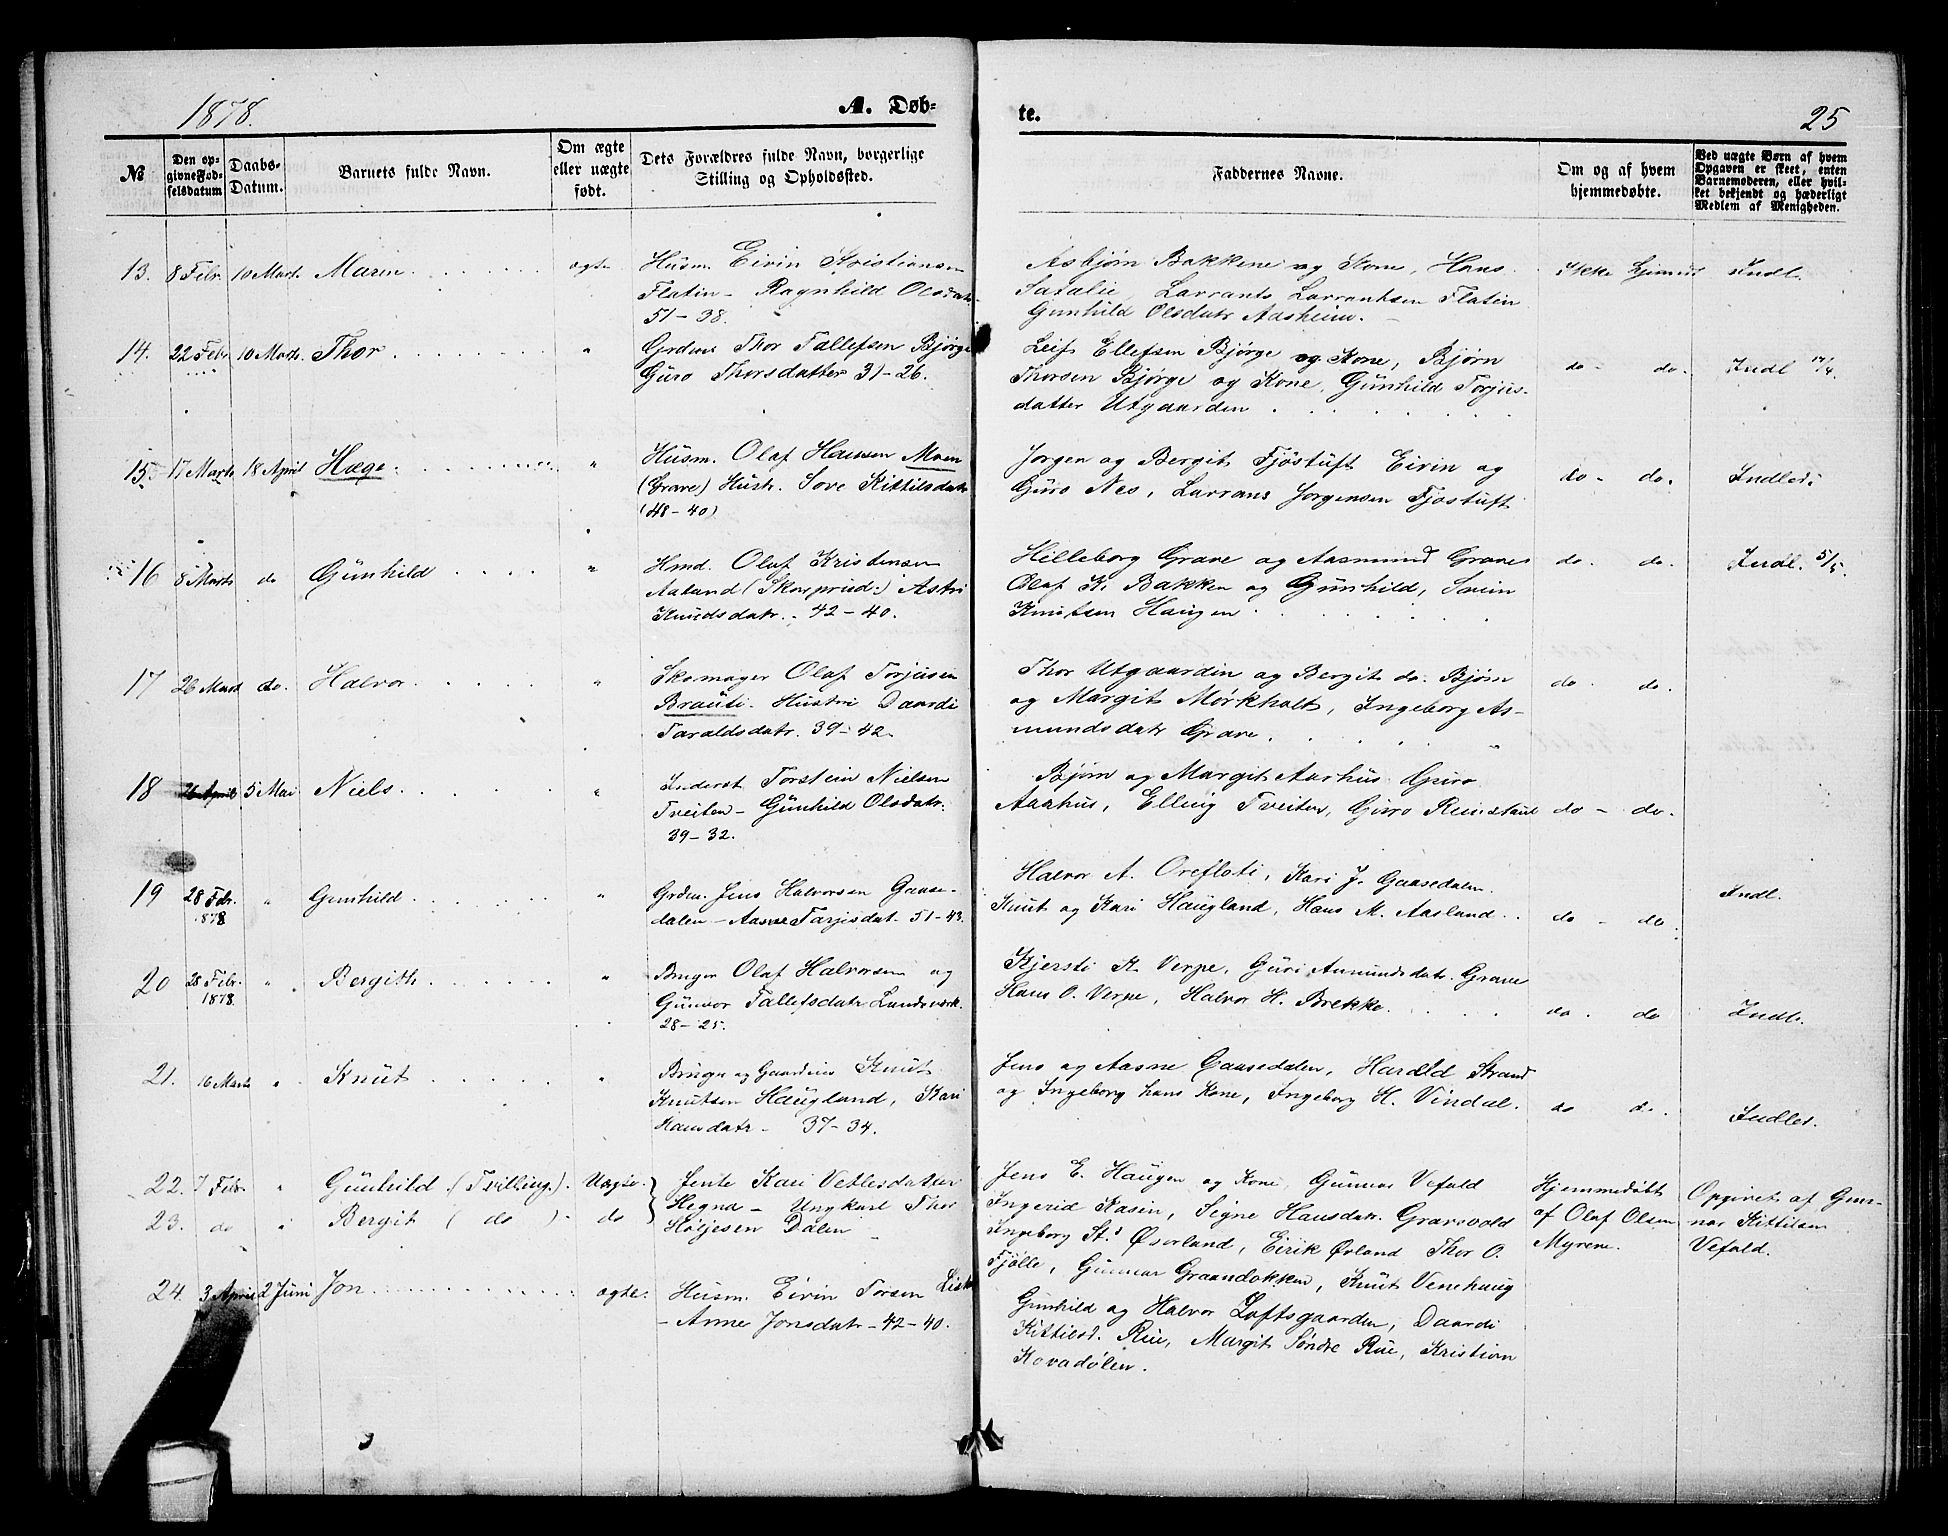 1878.
A. Døb-
te.
25
№
Den op-
givne Fød-
selsdatum
Daabs-
Datum.
Barnets fulde Navn.
Om ægte
eller uægte
født.
Dets Forældres fulde Navn, borgerlige
Stilling og Opholdssted.
Faddernes Navne.
Om og af hvem
hjemmedøbte.
Ved uægte Børn af hvem
Opgaven er skeet, enten
Barnemoderen, eller hvil-
ket bekjendt og hæderligt
Medlem af Menigheden.
13. 8 Febr. 10 Marts. Maren ægte Husm. Eivin Kristiansen
Flatin - Ragnhild Olsdatr.
51-38.
Asbjørn Bakkene og Kone, Hans
Larrants Larrantsen Flatin
Gunhild Olsdatr Aasheim.
Ikke hjemmed Indl.
14. 22 Febr. 10 Marts. Thor " Grdm. Thor Tallefsen Bjørge
Guro Thorsdatter 31-26.
Leif Ellefsen Bjørge og Kone, Bjørn
Thorsen Bjørge og Kone, Gunhild Torjus-
datter Utgaarden
do - do. Indl 17/4.
15. 17 Marts 18 April Hæge. " Husm. Olaf Hansen Moen
(Grave) Hustr. Sove Kittilsdatr
(48-40)
Jorgen og Bergit Fjøstuft Eivin og
Guro Nes, Larrans Jorgensen Fjøstuft
do - do. Indled.
16 8 Marts do Gunhild " Hmd. Olaf Kristensen
Aaland Astri
Knudsdatr. - 42-40.
Hilleborg Grave og Aasmund Graves
Olaf K. Bakken og Gunhild, Svein
Knutsen Haugen
do. do. Indl. 5/5.
17 26 Marts do. Halvor. " Skomager Olaf Torjusen
Brauti. Hustru Daardi
Taraldsdatr. 39-42.
Thor Utgaardin og Bergit do. Bjørn
og Margit Mørkholt, Ingeborg As-
mundsdatr Grave.
do - do.
18 26 April 5 Mai Niels. " Inderst Torstein Nielsen
Tveiten - Gunhild Olsdatr.
39-32.
Bjørn og Margit Aarhus. Guro
Aarhus, Elling Tveiten, Guro
do - do.
19 28 Febr.
1878 " Gunhild. " Grdm. Jens Halvorsen Gaase-
dalen - Aasne Tarjisdat. 51-43.
Halvor A. Orefloti, Kari J. Gaasedalen.
Knut og Kari Haugland, Hans M. Aasland.
do - do Indl.
20 28 Febr.
1878. " Bergith. " Bruger Olaf Halvorsen og
Gunvor Tallefsdatr Landsverk.
28-25.
Kjersti K. Verpe, Guri Amundsdatr. Grave
Hans O. Verpe, Halvor H. Brekke.
do. do Indl.
21. 16 Marts " Knut " Bruger og Gaardeier Knut
Knutsen Haugland, Kari
Hansdatr - 37-34.
Jens og Aasne Gaasedalen, Harald Strand
og Ingeborg hans Kone, Ingeborg H. Vindal.
do do. Indled.
22. 7 Febr. " Gunhild (Tvilling). Uægte.
23. do " Bergit ( do ). do
Jente Kari Vetlesdatter
Hegna - Ungkarl Thor
Høljesen Dalen
Jens E. Haugen og Kone Gunnar Vefald
Ingerid Kasin, Signe Hansdatr. Gravsvold
Ingeborg Øverland, Eirik Øvland Thor O.
Fjølle, Gunnar Graandokken, Knut Venehaug
Hjemmedøbt
af Olaf Olsen
Myrene.
Opgivet af Gun-
nar Kittilsen
Vefald.
24. 3 April 2 Juni Jon. ægte. Husm. Eivin Torsen
- Anne Jonsdatr - 42-40.
Gunhild og Halvor Loftsgaarden, Daardi
Kittilsd. Rue, Margit Søndre Rue, Kristian
Kovadølen.